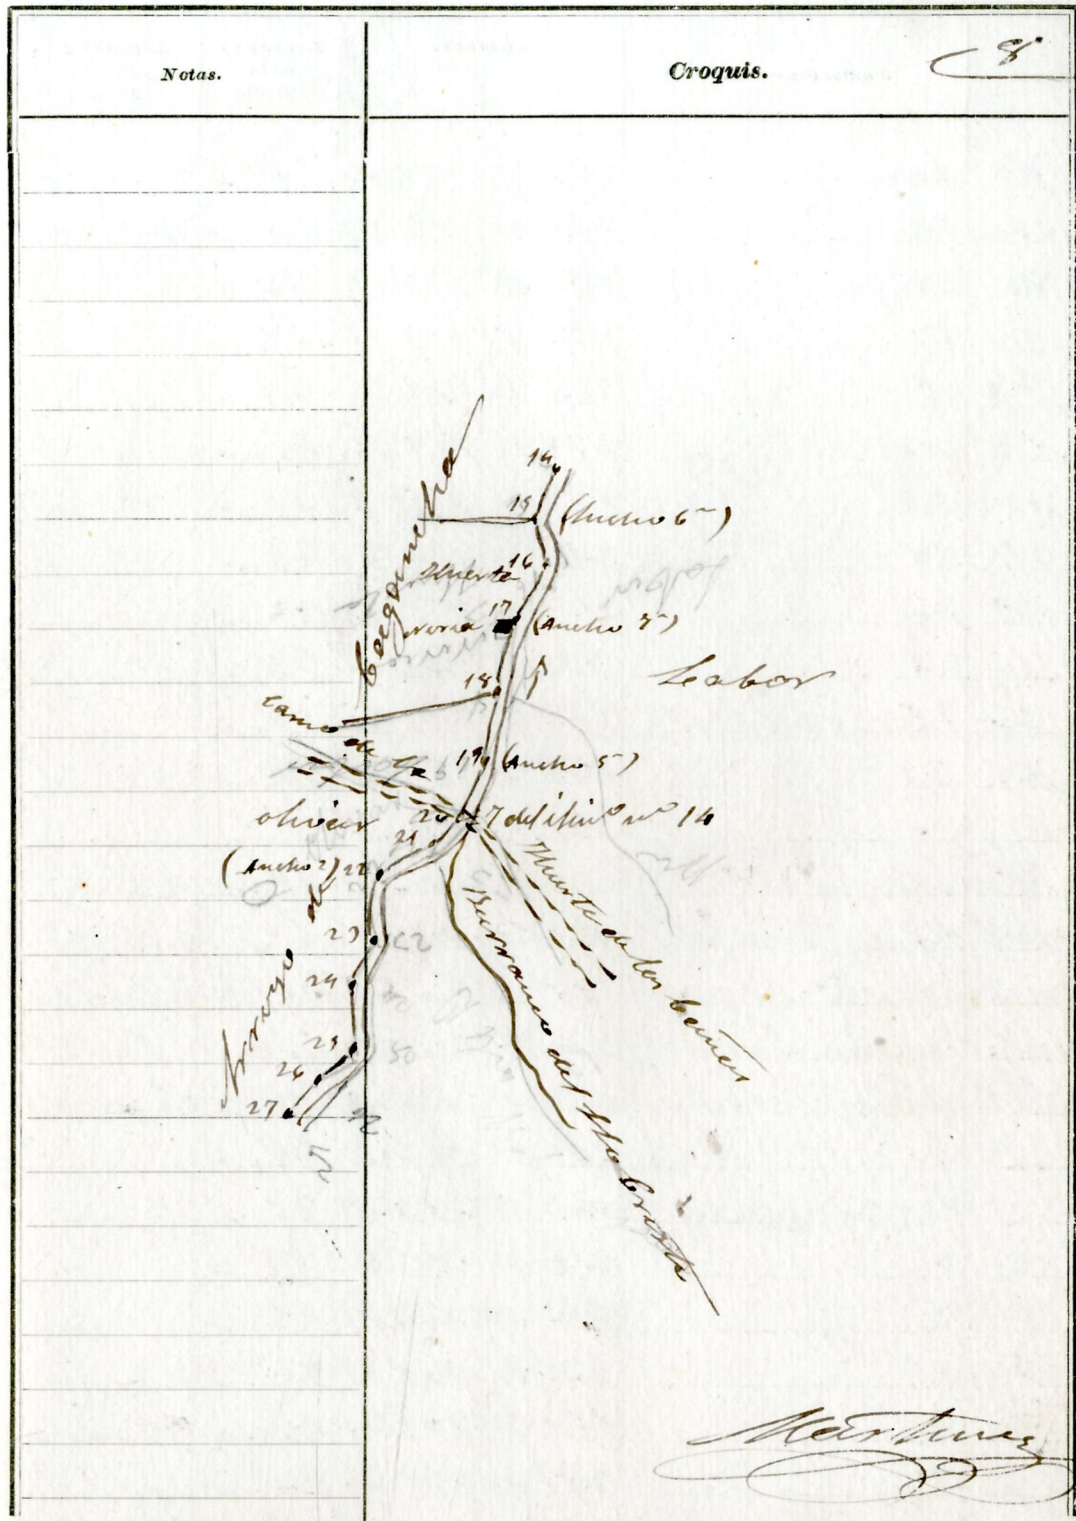 Notas.
Croquis.
8
14
15 (Ancho 6m)
Huerta 16
noria 17 (Ancho 7m)
18
Labor
Camo de la
19 (Ancho 5m)
olivar
20
7 del itino no 14
21
(Ancho 2) 22
23
24
25
26
27
Arroyo de
Huerta de las
Barranco del Sto Cristo
Martinez